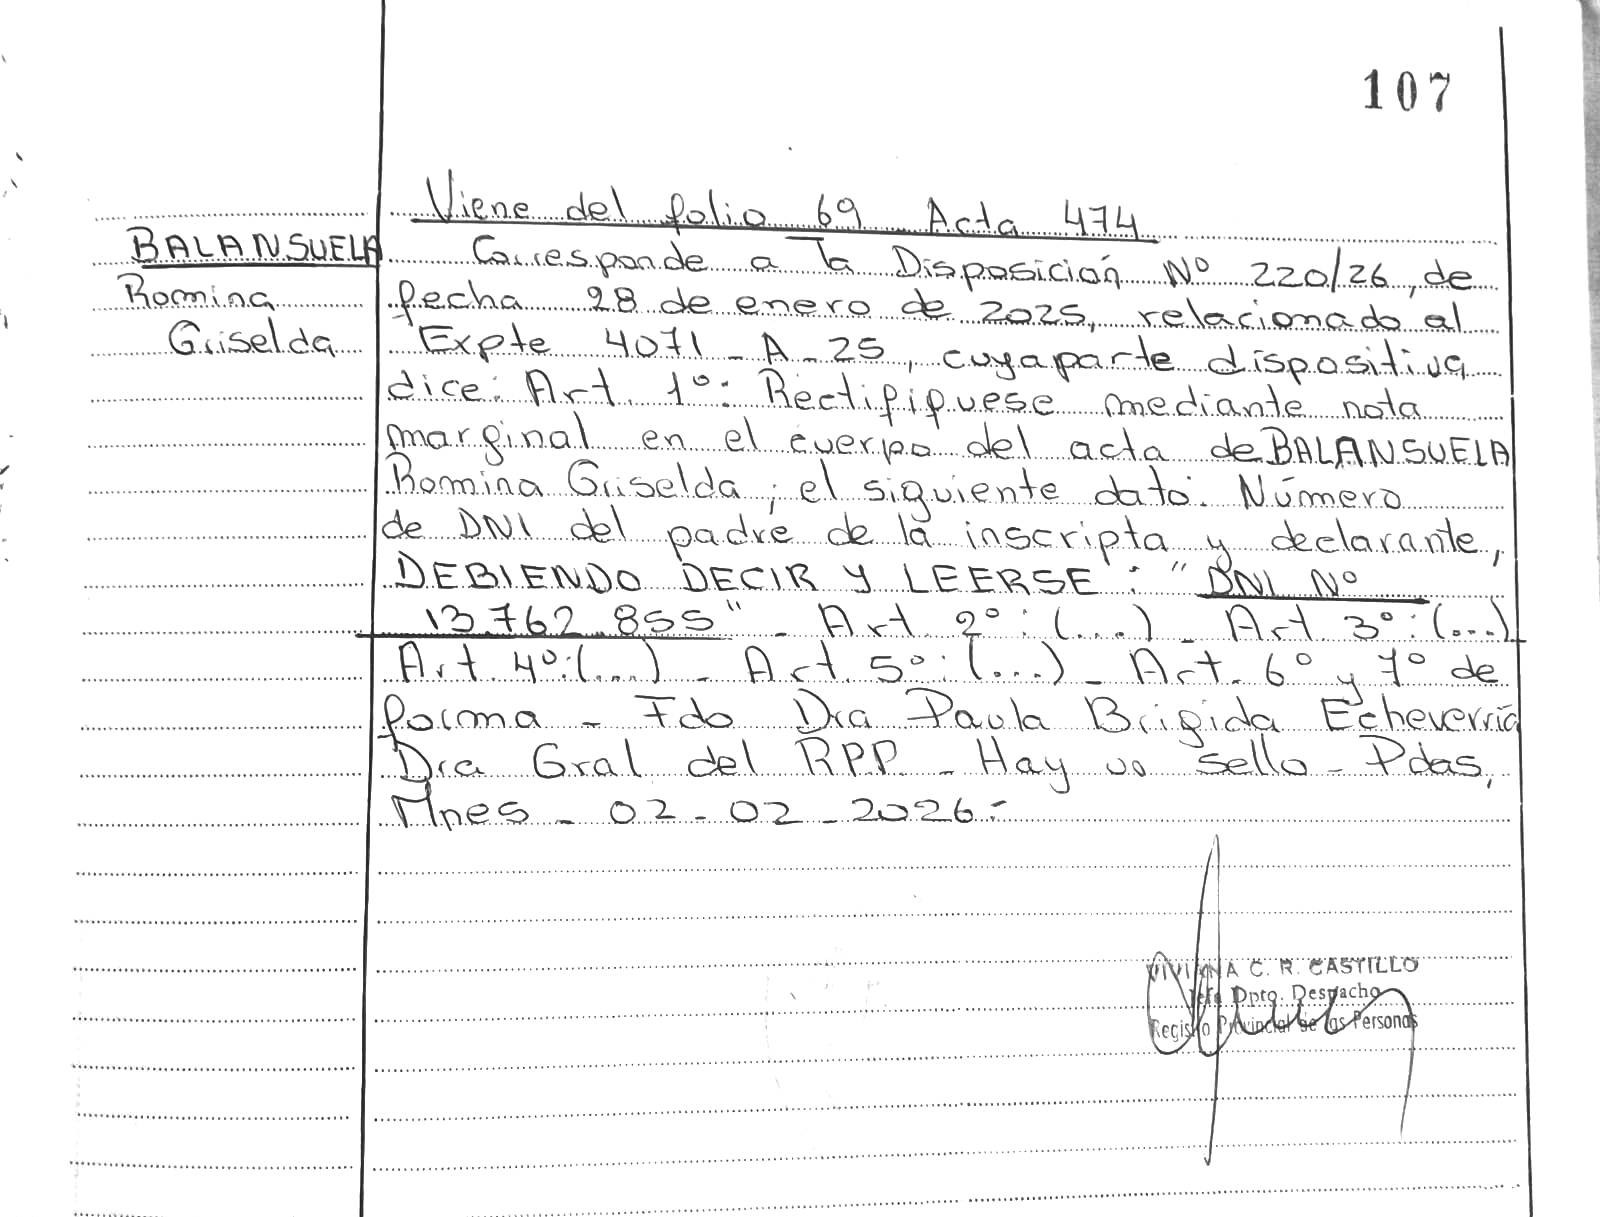 107
Viene del folio 69 Acta 474
BALANSUELA
Romina
Griselda
Corresponde a la Disposición Nº 220/26, de
fecha 28 de enero de 2025, relacionado al
Expte 4071 - A - 25, cuya parte dispositiva
dice: Art. 1º: Rectififquese mediante nota
marginal en el cuerpo del acta de BALANSUELA
Romina Griselda, el siguiente dato: Número
de DNI del padre de la inscripta y declarante,
DEBIENDO DECIR Y LEERSE: "DNI Nº
13.762.855" - Art. 2º: (...) - Art. 3º: (...)
Art. 4º: (...) - Art. 5º: (...) - Art. 6º y 7º de
forma - Fdo Dra Paula Brigida Echeverría
Dra Gral del RPP - Hay un sello - Pdas,
Mnes - 02 - 02 - 2026 :
VIVIANA C. R. CASTILLO
Jefa Dpto. Despacho
Registro Provincial de las Personas